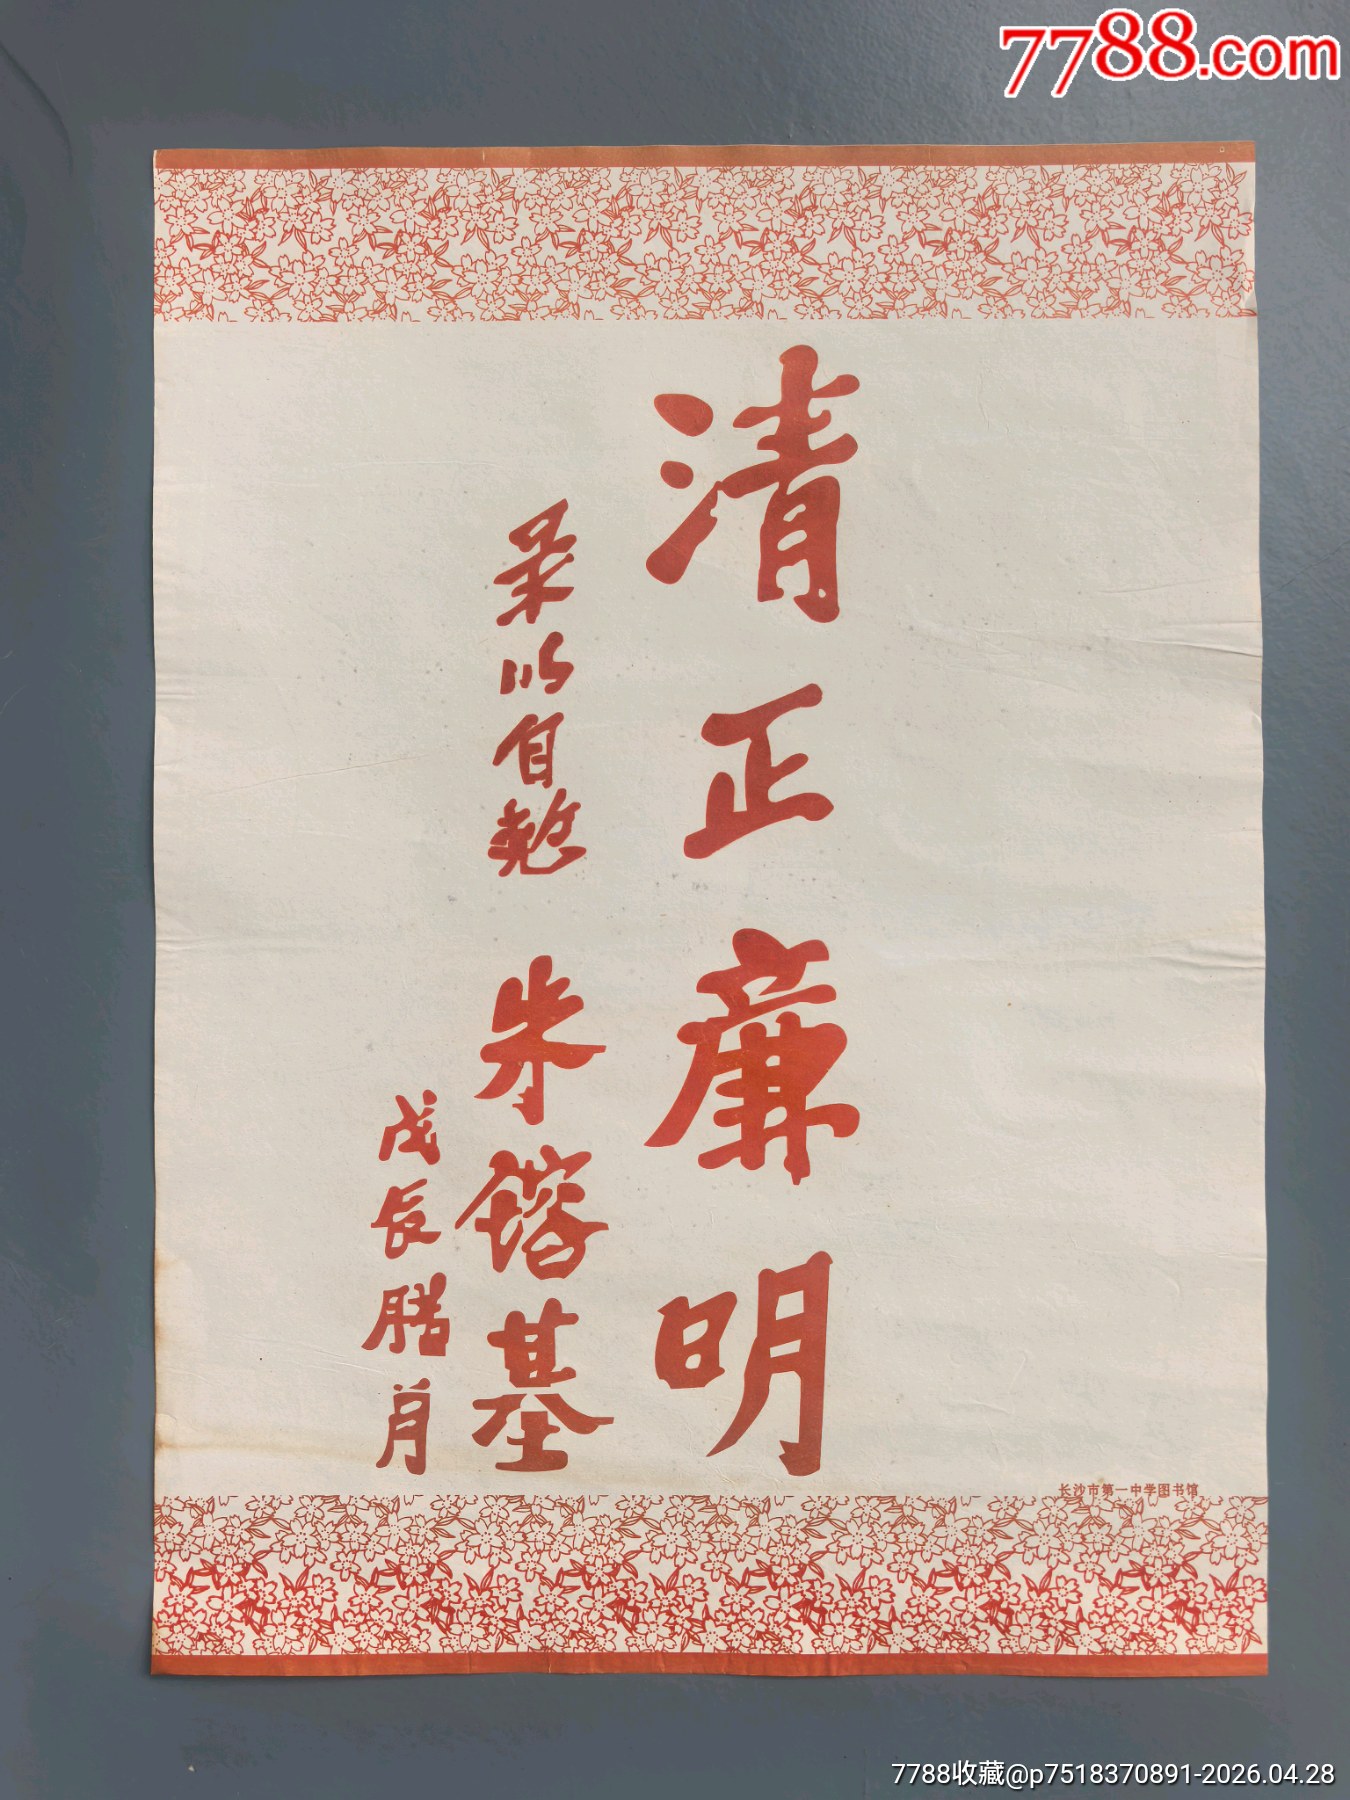 清正廉明
录以自勉 朱镕基
戊辰腊月
长沙市第一中学图书馆
7788.com
7788收藏@p7518370891-2026.04.28